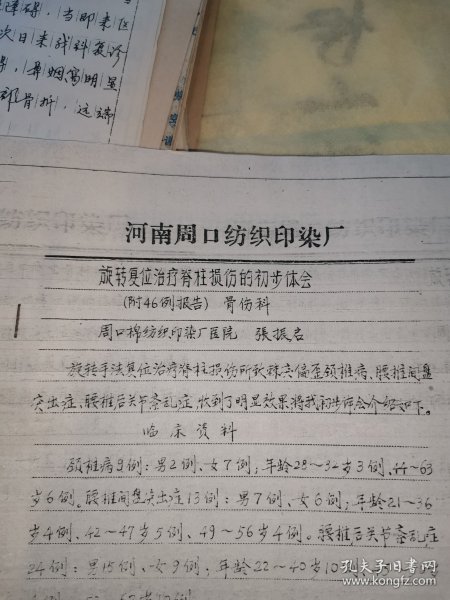 障碍，当即来医
次日来我科复诊
鼻烟窝明显
部骨折，远端
河南周口纺织印染厂
旋转复位治疗脊柱损伤的初步体会
(附46例报告) 骨伤科
周口棉纺织印染厂医院 张振启
旋转手法复位治疗脊柱损伤所致棘突偏歪颈椎病、腰椎间盘
突出症、腰椎后关节紊乱症，收到了明显效果，将我初步体会介绍如下。
临床资料
颈椎病9例：男2例、女7例；年龄28～32岁3例、44～63
岁6例。腰椎间盘突出症13例：男7例、女6例；年龄21～36
岁4例、42～47岁5例、49～56岁4例。腰椎后关节紊乱症
24例：男15例、女9例，年龄22～40岁10
孔夫子旧书网
kongfz.com